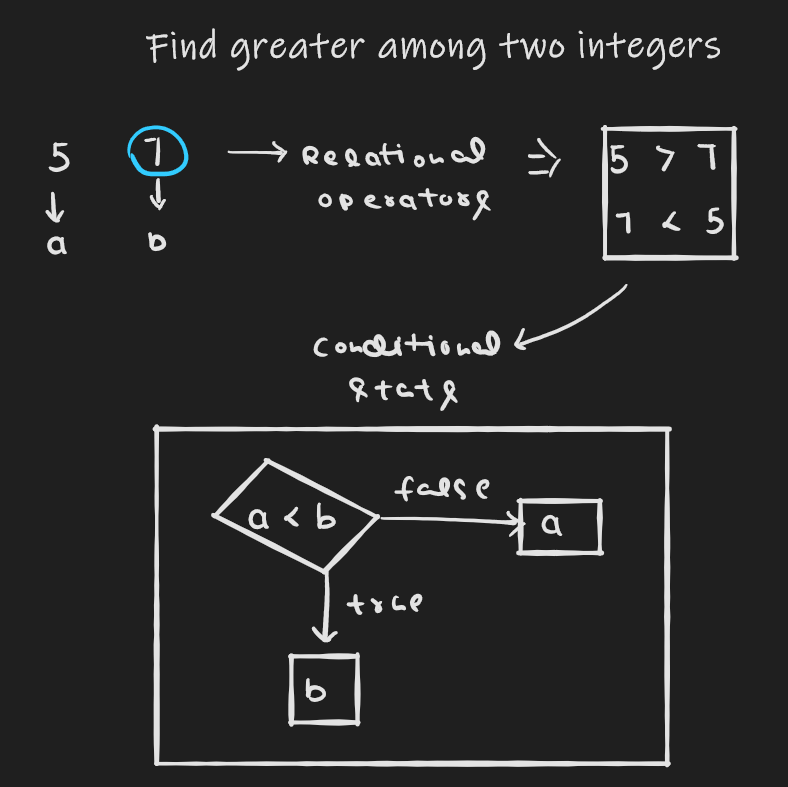 Find greater among two integers
5 7 → Relational ⇒ 5 > 7
operators 7 < 5
↓ ↓
a b
conditional
stats
a < b false a
true
b